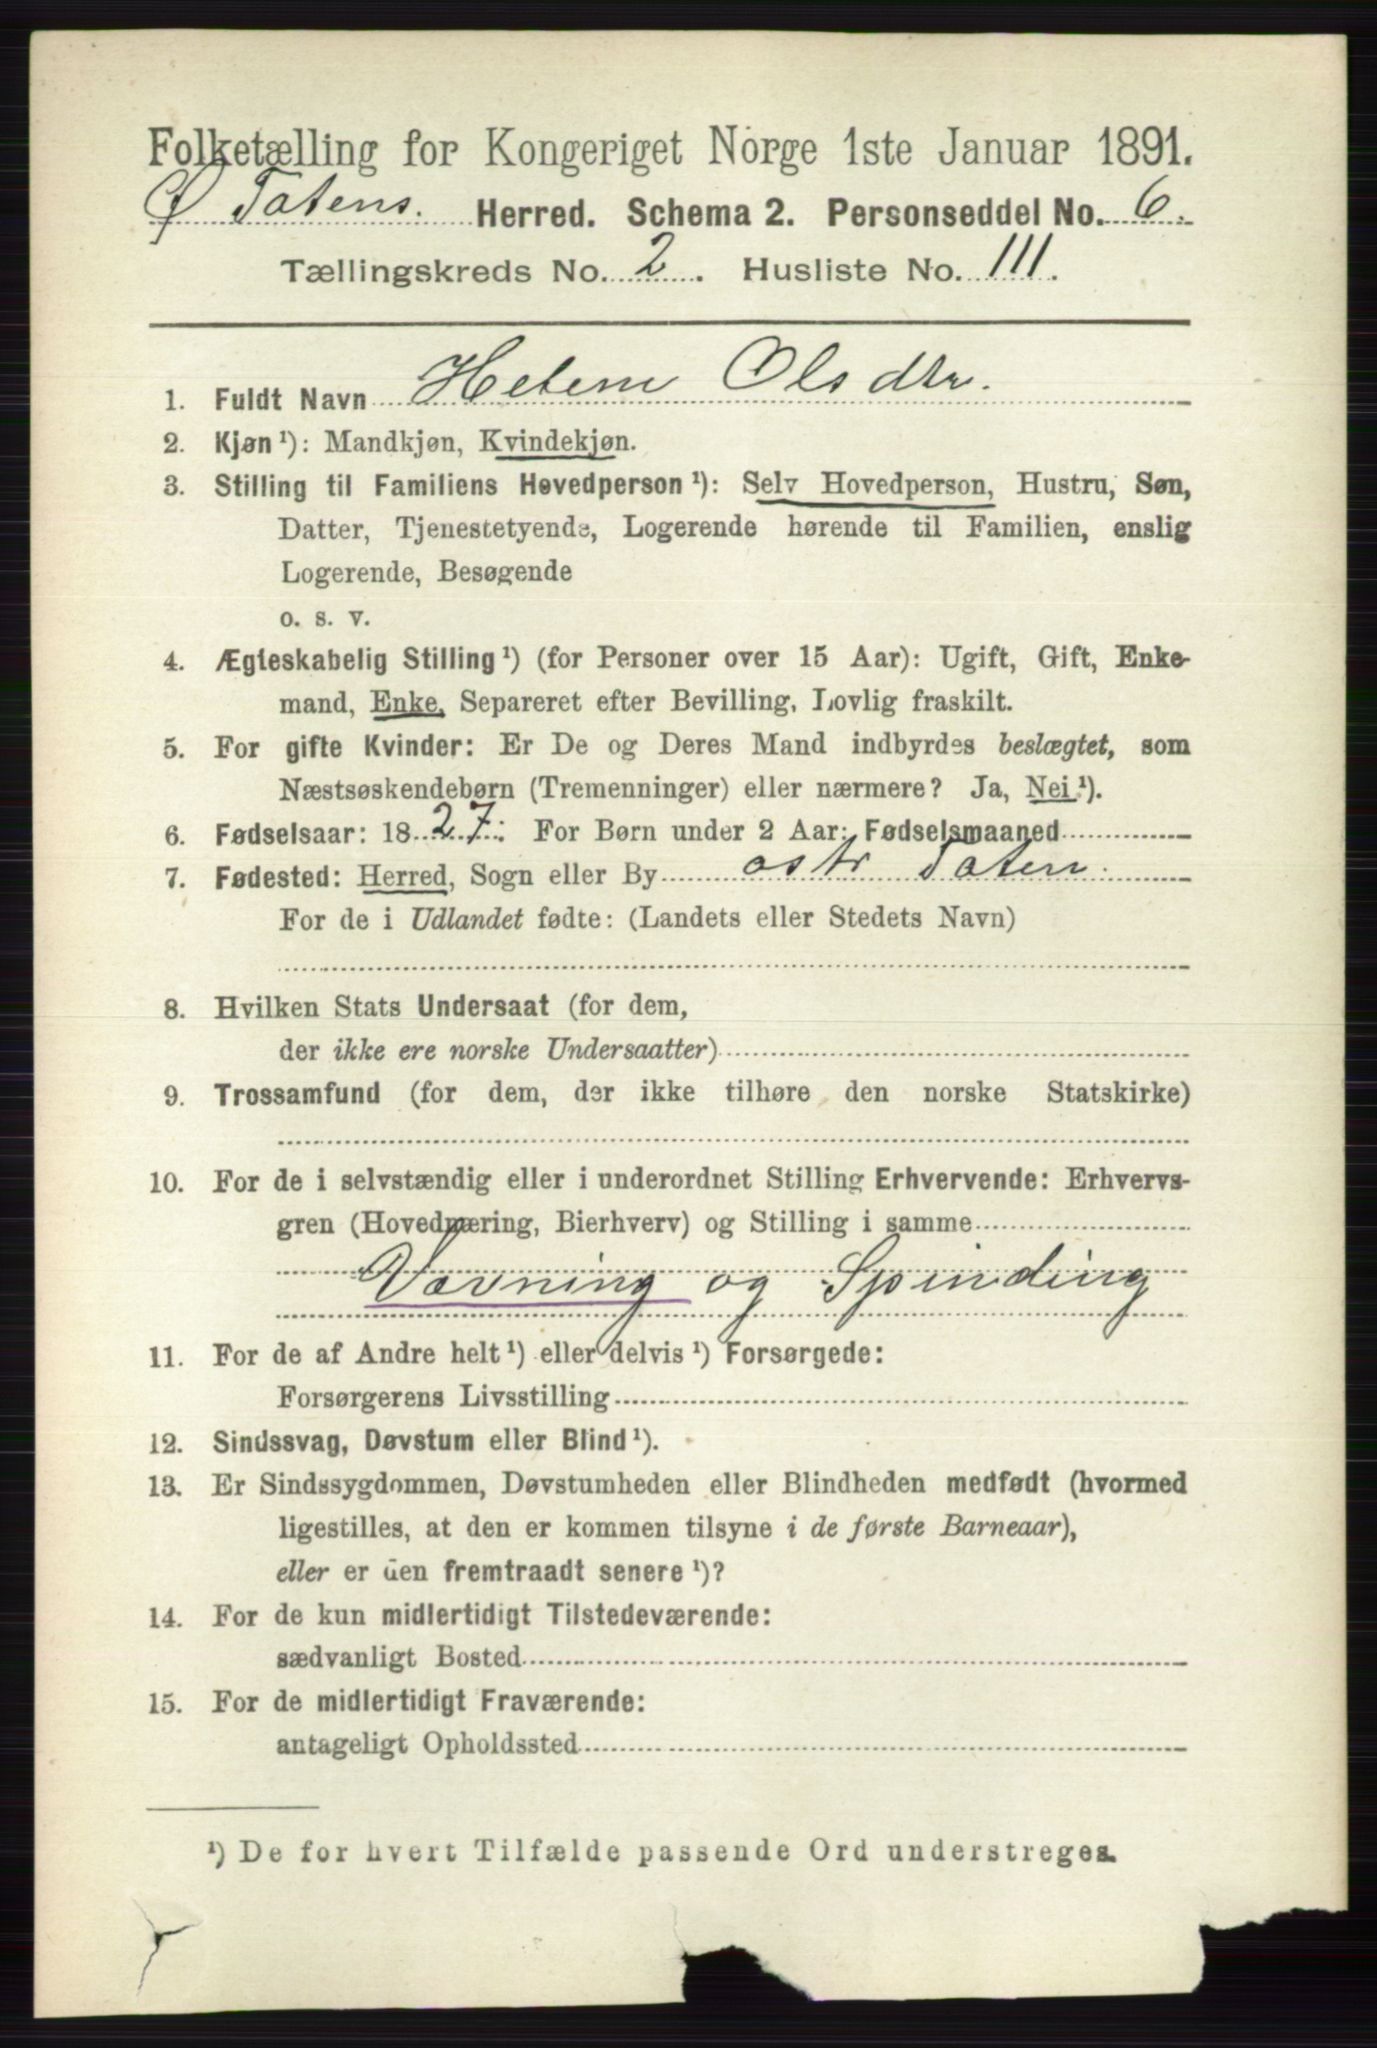 Folketælling for Kongeriget Norge 1ste Januar 1891.
Ø Totens. Herred. Schema 2. Personseddel No. 6.
Tællingskreds No. 2. Husliste No. 111.
1. Fuldt Navn Helene Olsdtr.
2. Kjøn ¹): Mandkjøn, Kvindekjøn.
3. Stilling til Familiens Hovedperson ¹): Selv Hovedperson, Hustru, Søn,
Datter, Tjenestetyende, Logerende hørende til Familien, enslig
Logerende, Besøgende
o. s. v.
4. Ægteskabelig Stilling ¹) (for Personer over 15 Aar): Ugift, Gift, Enke-
mand, Enke, Separeret efter Bevilling, Lovlig fraskilt.
5. For gifte Kvinder: Er De og Deres Mand indbyrdes beslægtet, som
Næstsøskendebørn (Tremenninger) eller nærmere? Ja, Nei ¹).
6. Fødselsaar: 1827. For Børn under 2 Aar: Fødselsmaaned
7. Fødested: Herred, Sogn eller By østr Toten.
For de i Udlandet fødte: (Landets eller Stedets Navn)
8. Hvilken Stats Undersaat (for dem,
der ikke ere norske Undersaatter)
9. Trossamfund (for dem, der ikke tilhøre den norske Statskirke)
10. For de i selvstændig eller i underordnet Stilling Erhvervende: Erhvervs-
gren (Hovednæring, Bierhverv) og Stilling i samme
Vævning og Spinding
11. For de af Andre helt ¹) eller delvis ¹) Forsørgede:
Forsørgerens Livsstilling
12. Sindssvag, Døvstum eller Blind ¹).
13. Er Sindssygdommen, Døvstumheden eller Blindheden medfødt (hvormed
ligestilles, at den er kommen tilsyne i de første Barneaar),
eller er den fremtraadt senere ¹)?
14. For de kun midlertidigt Tilstedeværende:
sædvanligt Bosted
15. For de midlertidigt Fraværende:
antageligt Opholdssted
¹) De for hvert Tilfælde passende Ord understreges.